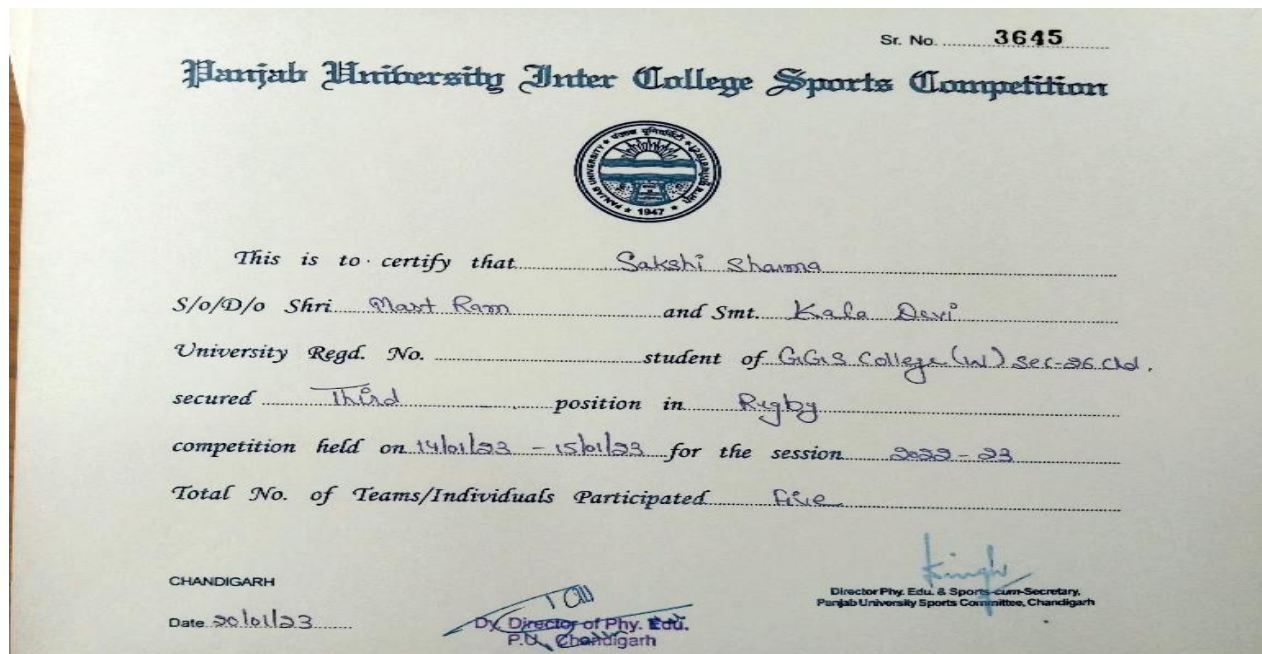 Sr. No. 3645
Panjab University Inter College Sports Competition
PANJAB UNIVERSITY
1947
This is to certify that Sakshi Sharma
S/o/D/o Shri Mast Ram and Smt. Kala Devi
University Regd. No. student of G.G.S College (W) Sec-26 Chd.
secured Third position in Rugby
competition held on 14/01/23 - 15/01/23 for the session 2022-23
Total No. of Teams/Individuals Participated Five
CHANDIGARH
Date 20/01/23
Dy. Director of Phy. Edu.
P.U. Chandigarh
Director Phy. Edu. & Sports-cum-Secretary,
Panjab University Sports Committee, Chandigarh